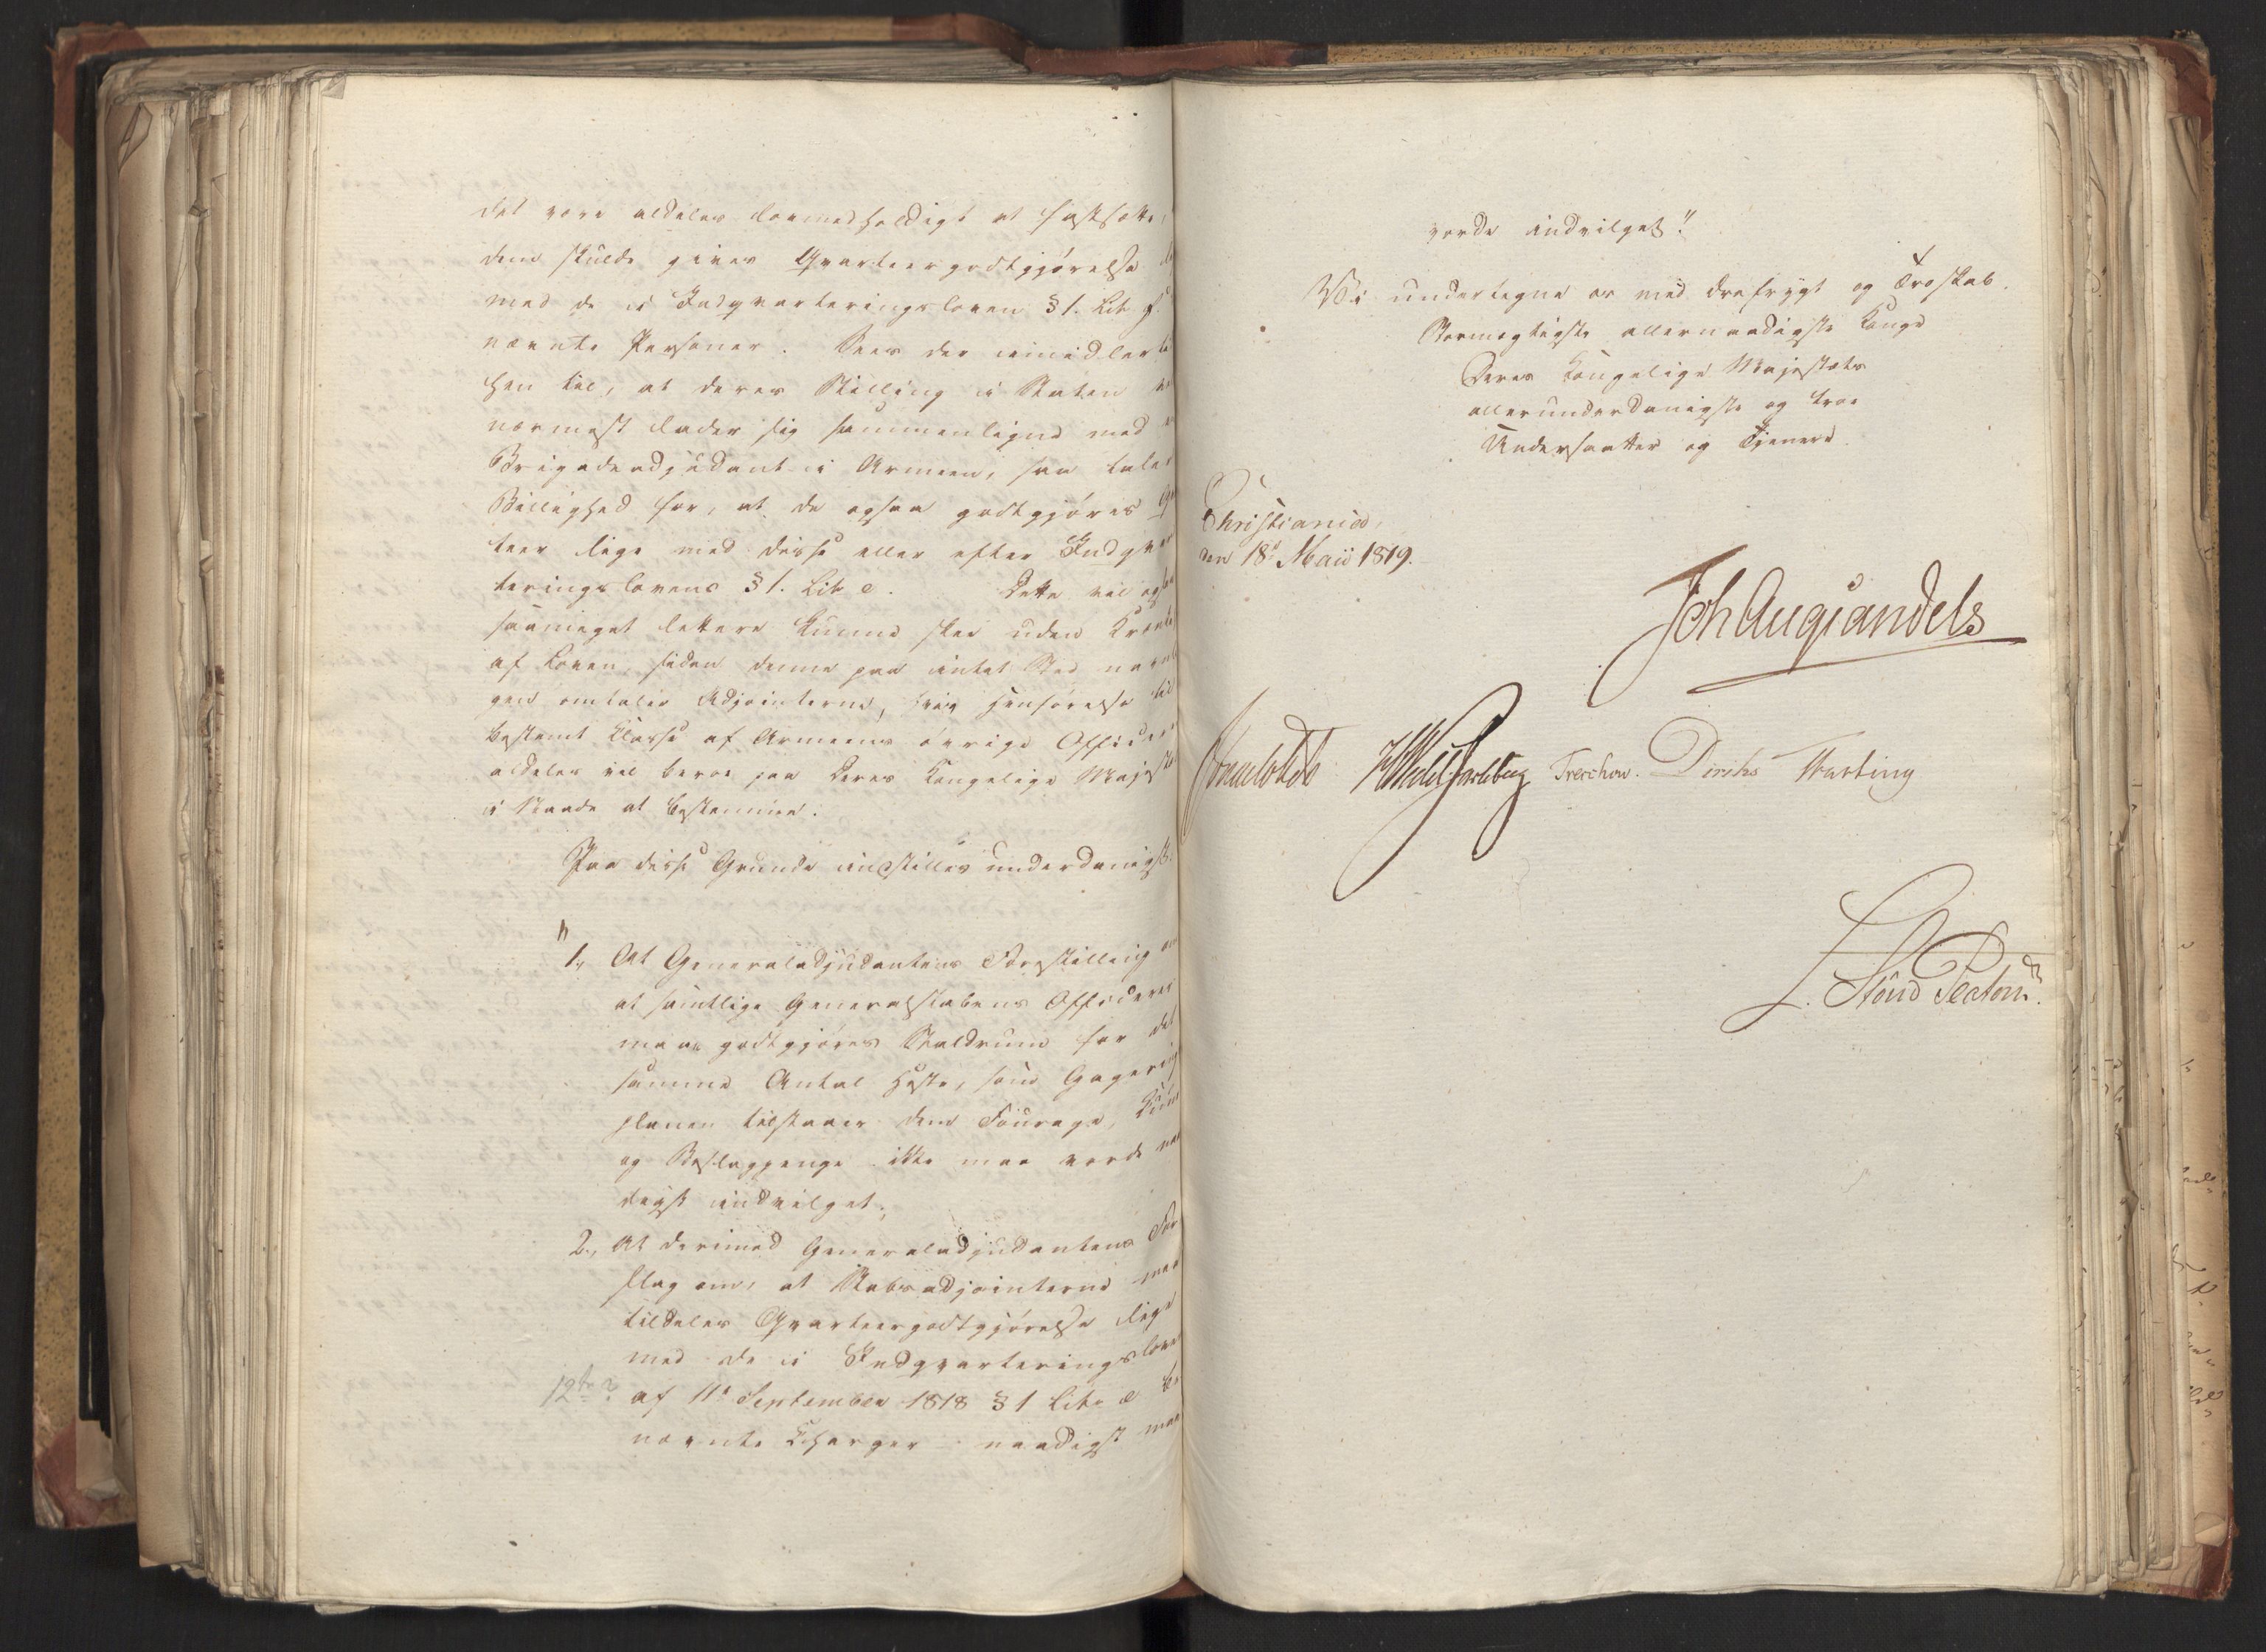 det være aldeles lovmedholdigt at fastsætte,
dem skulde gives Qvarteergodtgjørelse
med de i Indqvarteringsloven § 1. Lit. f.
nævnte Personer. Sees der imidlerti
hen til, at deres Stilling i Staten
nærmest lader sig sammenligne med
Brigadeadjudant i Armeen, saa taler
Billighed for, at de ogsaa godtgjøres
teer lige med disse eller efter Indqvar
teringslovens § 1. Lit e. Dette vil ogsaa
saameget lettere kunne skee uden Krænk
af Loven, siden denne paa intet Sted
gen omtaler Adjointerne, hvis Henførelse til
bestemt Klasse af Armeens øvrige Officierer
aldeles vil beroe paa Deres Kongelige Majestæt
i Naade at bestemme.
Paa disse Grunde indstilles underdanigst:
"1., At Generaladjudantens Forestilling om
at samtlige Generalstabens Officierer
maae godtgjøres Staldrum for det
samme Antal Heste, som Gagerings
planen tilstaaer dem Fourage,
og Beslagpenge ikke maa vorde naa
digst indvilget;
2., At derimod Generaladjudantens For
slag om, at Stabsadjointerne maa
tildeles Qvarteergodtgjørelse lige
med de i Indqvarteringsloven
12te? af 11t September 1818 § 1 Lit. e be
nævnte Charger naadigst maa
vorde indvilget."
Vi undertegne os med Ærefrygt og Troskab.
Stormægtigste allernaadigste Konge
Deres Kongelige Majestæts
allerunderdanigste og troe
Undersaatter og Tjenere
Christiania,
den 18d Maii 1819.
Joh Aug Sandels
Sommerhielm HWedel Jarlsberg Treschow. Diriks Motzfeldt
L. Stoud Platou.